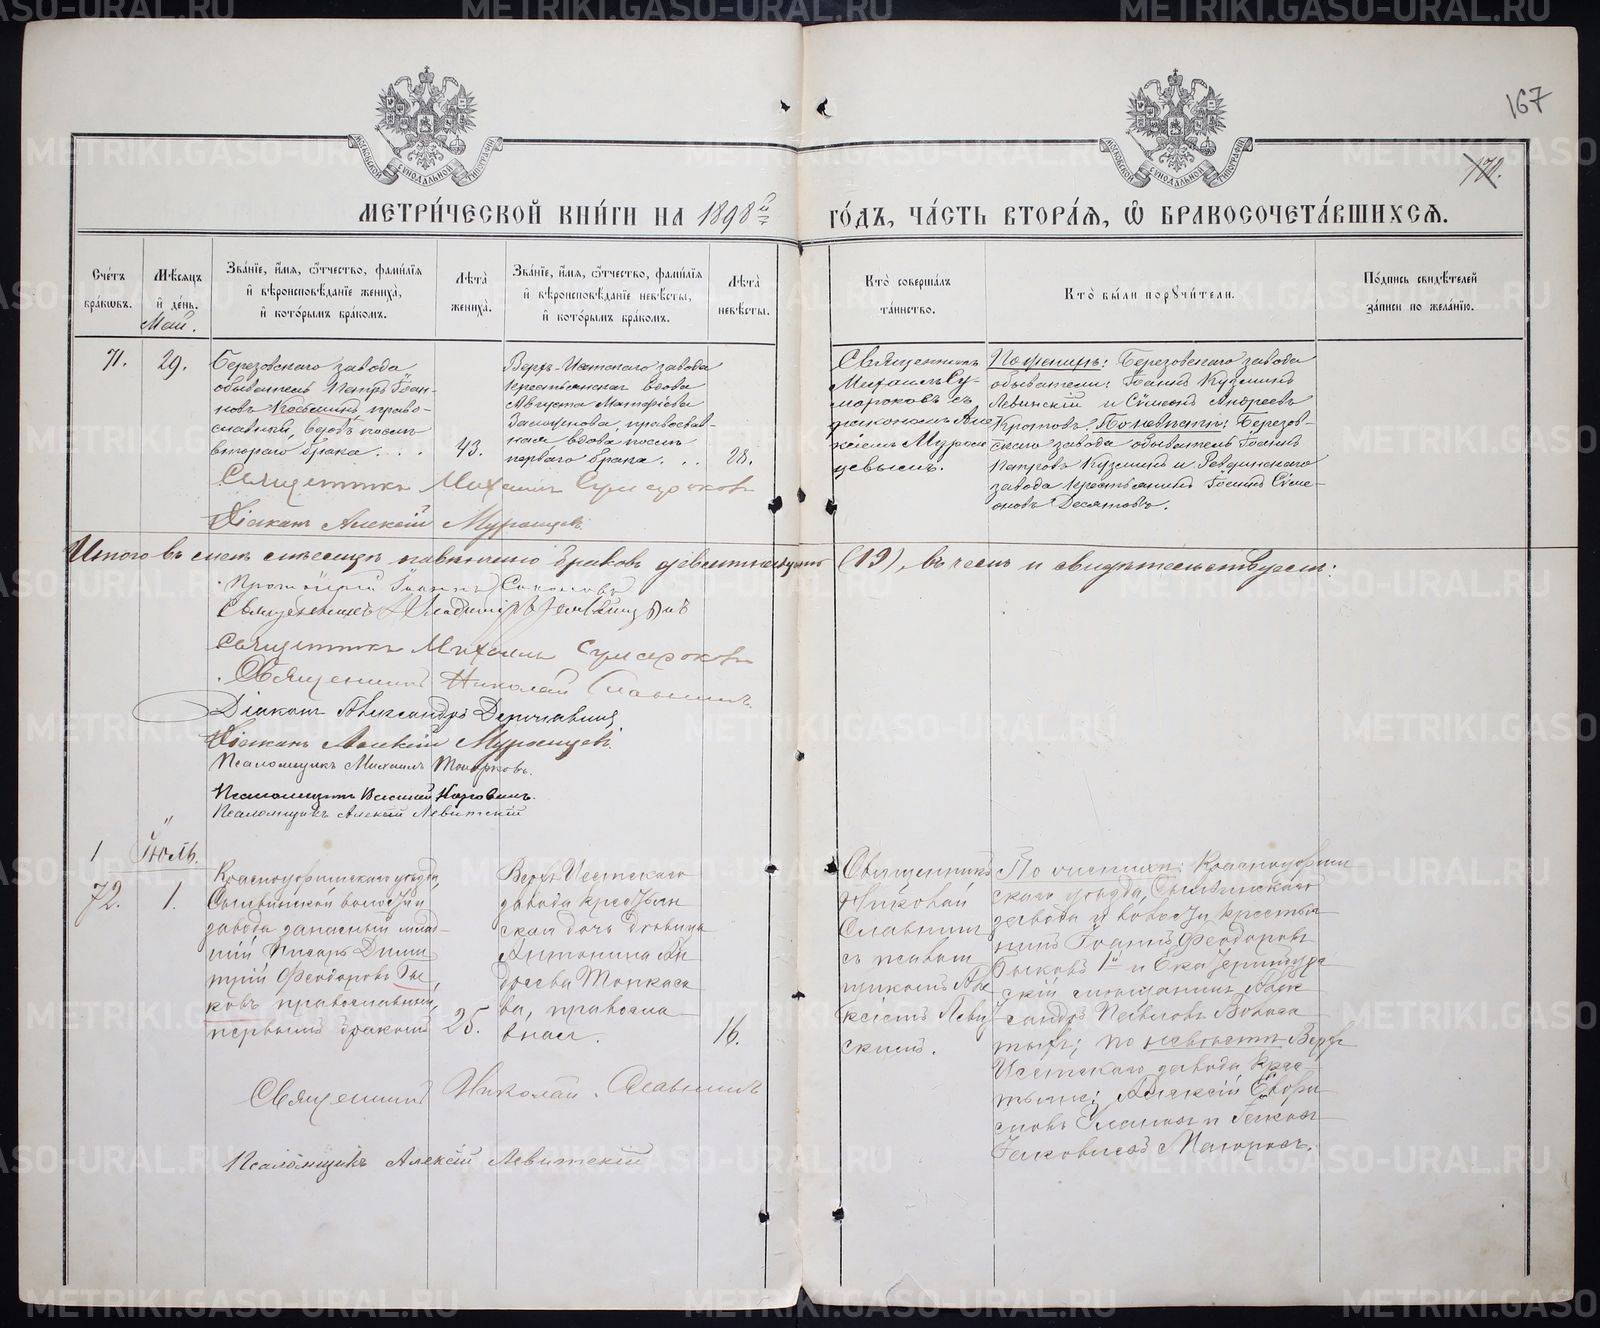 167
171.
МОСКОВСКОЙ СѴНОДАЛЬНОЙ ТИПОГРАФІИ
МОСКОВСКОЙ СѴНОДАЛЬНОЙ ТИПОГРАФІИ
МЕТРИ́ЧЕСКОЙ КНИ́ГИ НА 1898й
ГО́ДЪ, ЧА́СТЬ ВТОРА́Я, Ѡ БРАКОСОЧЕТА́ВШИХСЯ.
Сче́тъ бра́кѡвъ.
Мѣ́сяцъ и҆ де́нь.
Зва́нїе, и҆́мя, ѻ҆́тчество, фами́лїя и҆ вѣроисповѣ́данїе жениха̀, и҆ кото́рымъ бра́комъ.
Лѣта̀ жениха̀.
Зва́нїе, и҆́мя, ѻ҆́тчество, фами́лїя и҆ вѣроисповѣ́данїе невѣ́сты, и҆ кото́рымъ бра́комъ.
Лѣта̀ невѣ́сты.
Кто̀ соверша́лъ та́инство.
Кто̀ бы́ли порꙋчи́тели.
По́дпись свидѣ́телей за́писи по жела́нїю.
Май.
71.
29.
Березовскаго завода
обыватель Петръ Іоан-
новъ Козьминъ, право-
славный, вдовъ послѣ
втораго брака . . .
43.
Верхъ-Исетскаго завода
крестьянская вдова
Августа Матфіева
православ-
ная, вдова послѣ
перваго брака. . .
28.
Священникъ
Михаилъ Су-
мороковъ съ
діакономъ Але
ксіемъ Мурзи
цевымъ.
По женихѣ: Березовскаго завода
обыватели: Іоаннъ Кузминъ
Левинскій и Сѵмеонъ Андреевъ
Кротовъ. По невѣстѣ: Березов-
скаго завода обыватель Іоаннъ
Петровъ Кузминъ и Ревдинскаго
завода крестьянинъ Іоаннъ Сѵме-
оновъ Десятовъ.
Священникъ Михаилъ Сумороковъ
Діаконъ Алексій
Итого въ маѣ мѣсяцѣ повѣнчано браковъ девятнадцать (19), въ чемъ и свидѣтельствуемъ:
Протоіерей Іоаннъ Соколовъ
Священникъ Владиміръ
Священникъ Михаилъ Сумороковъ
Священникъ Николай Славнинъ
Діаконъ Александръ
Діаконъ Алексій
Псаломщикъ Михаилъ Топорковъ.
Псаломщикъ Василій
Псаломщикъ Алексій Левитскій
1
Іюль.
72.
1.
Красноуфимскаго уѣзда,
Сылвинской волости и
завода запасный млад
шій писарь Дими
трій Ѳеодоровъ Бы
ковъ православный,
первымъ бракомъ
25.
Верхъ Исетскаго
завода крестьян
ская дочь дѣвица
Антонина Ан
православ
ная.
16.
Священникъ
Николай
Славнинъ
съ псалом
щикомъ Але
ксіемъ Левит
скимъ.
По женихѣ: Красноуфим
скаго уѣзда, Сылвинскаго
завода и волости крестья
нинъ Іоаннъ Ѳеодоровъ
Быковъ 1й и Екатеринбург
скій мѣщанинъ Алек
сандръ Павловъ
по невѣстѣ Верхъ
Исетскаго завода крес
тьяне: Алексій
Священникъ Николай Славнинъ
Псаломщикъ Алексій Левитскій
METRIKI.GASO-URAL.RU